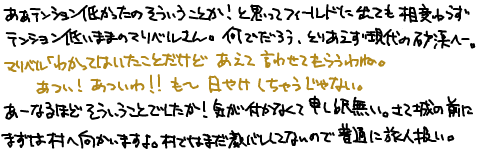 ああテンション低かったのそういうことか！と思ってフィールドに出ても相変わらず
テンション低いままのマリベルさん。何でだろう、とりあえず現代の砂漠へー。
マリベル「わかってはいたことだけど あえて言わせてもらうわね。
あつい！あついわ！！も〜日やけしちゃうじゃない。
あーなるほどそういうことでしたか！気が付かなくて申し訳無い。さて城の前に
まずは村へ向かいますよ。村ではまだ救バレしてないので普通に旅人扱い。